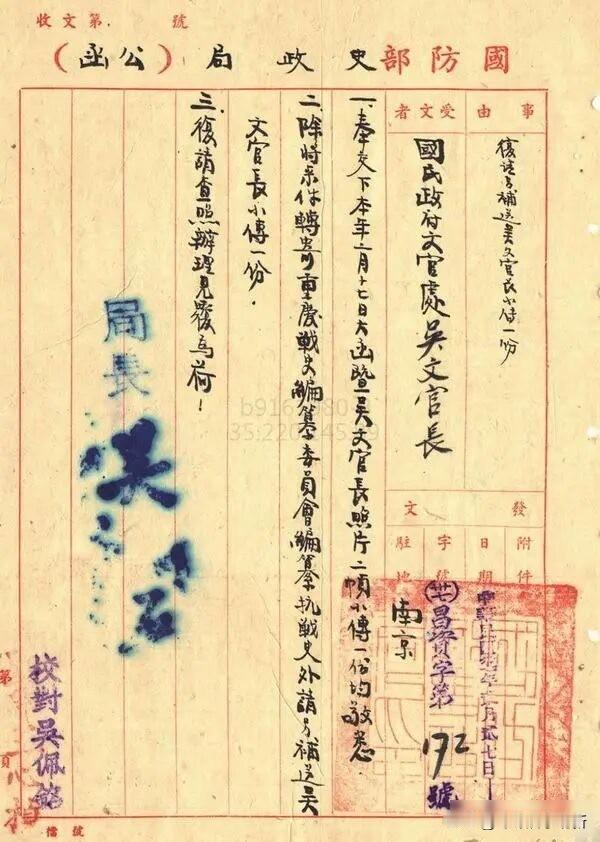 收文第 號
國防部史政局(公函)
事由
復請另補送吳文官長小傳一份
受文者
國民政府文官處吳文官長
發文
附件
日期
中華民國 年 月貳七日
字號
(卅七)昌資字第172號
駐地
南京
一、奉交下本年二月十七日大函暨吳文官長照片二幀小傳一份均敬悉.
二、除將來件轉寄重慶戰史編纂委員會編纂抗戰史外請另補送吳
文官長小傳一份.
三、復請查照辦理見覆為荷!
局長
吳石
校對吳佩
第
頁
檔號